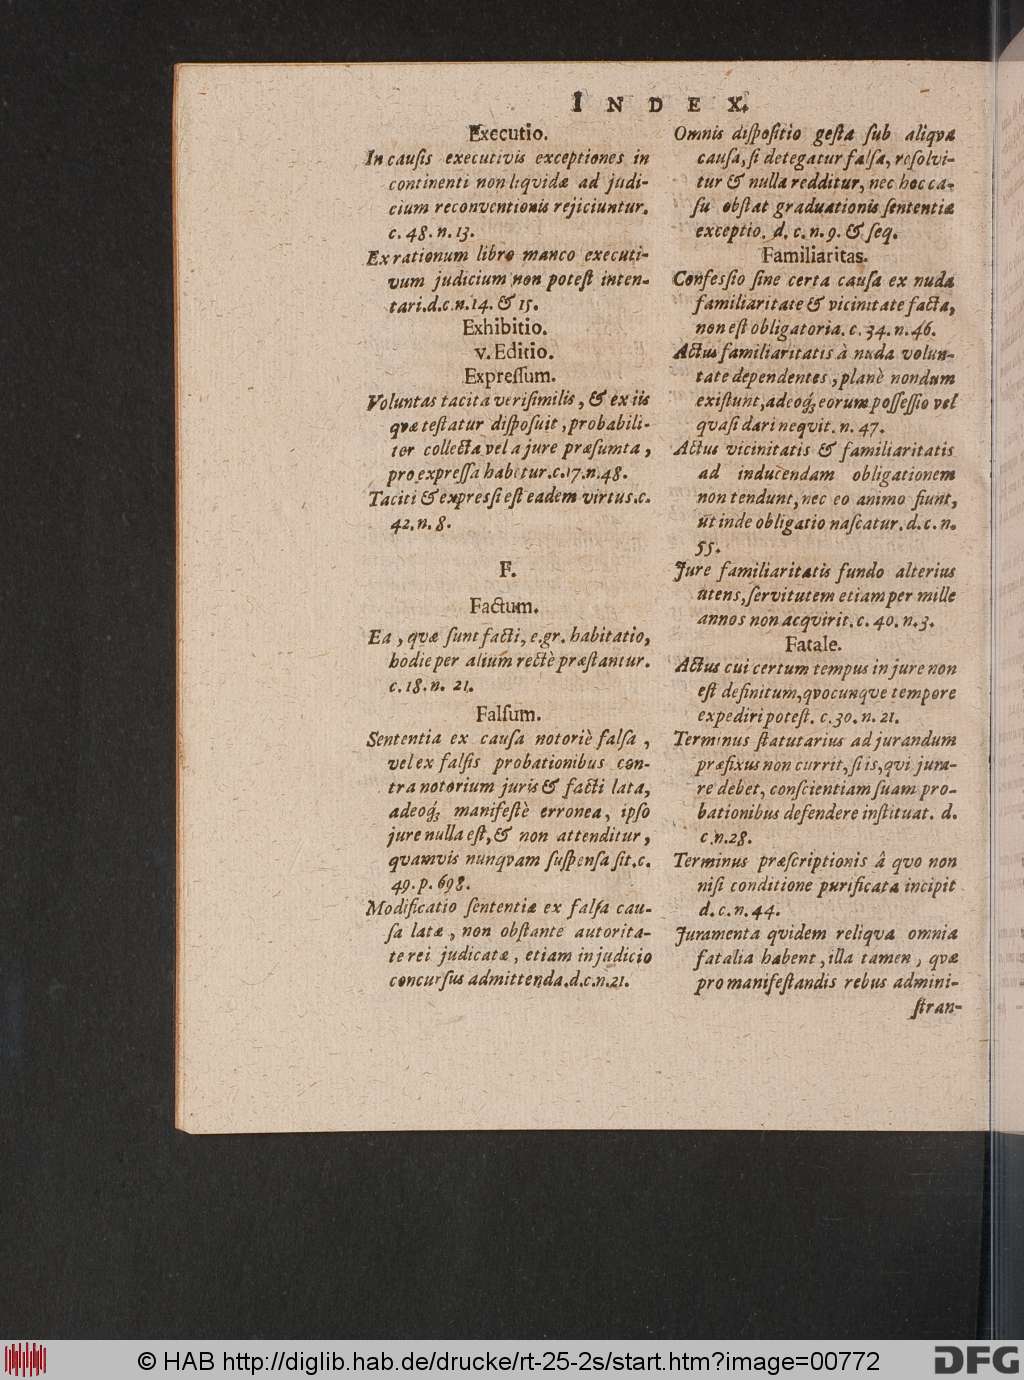 INDEX.
Executio.
In causis executivis exceptiones in
continenti non liquidæ ad judi-
cium reconventionis rejiciuntur.
c. 48. n. 13.
Ex rationum libro manco executi-
vum judicium non potest inten-
tari. d. c. n. 14. & 15.
Exhibitio.
v. Editio.
Expressum.
Voluntas tacita verisimilis, & ex iis
qvæ testatur disposuit, probabili-
ter collecta vel a jure præsumta,
pro expressa habetur. c. 17. n. 48.
Taciti & expressi est eadem virtus. c.
42. n. 8.
F.
Factum.
Ea, qvæ sunt facti, e. gr. habitatio,
hodie per alium rectè præstantur.
c. 18. n. 21.
Falsum.
Sententia ex causa notoriè falsa,
vel ex falsis probationibus con-
tra notorium juris & facti lata,
adeoq; manifestè erronea, ipso
jure nulla est, & non attenditur,
qvamvis nunqvam suspensa sit. c.
49. p. 698.
Modificatio sententiæ ex falsa cau-
sa latæ, non obstante autorita-
te rei judicatæ, etiam in judicio
concursus admittenda. d. c. n. 21.
Omnis dispositio gesta sub aliqva
causa, si detegatur falsa, resolvi-
tur & nulla redditur, nec hoc ca-
su obstat graduationis sententiæ
exceptio. d. c. n. 9. & seq.
Familiaritas.
Confessio sine certa causa ex nuda
familiaritate & vicinitate facta,
non est obligatoria. c. 34. n. 46.
Actus familiaritatis à nuda volun-
tate dependentes, planè nondum
existunt, adeoq; eorum possessio vel
quasi dari neqvit. n. 47.
Actus vicinitatis & familiaritatis
ad inducendam obligationem
non tendunt, nec eo animo fiunt,
ut inde obligatio nascatur. d. c. n.
55.
Jure familiaritatis fundo alterius
utens, servitutem etiam per mille
annos non acqvirit. c. 40. n. 3.
Fatale.
Actus cui certum tempus in jure non
est definitum, qvocunqve tempore
expediri potest. c. 30. n. 21.
Terminus statutarius ad jurandum
præfixus non currit, si is, qvi jura-
re debet, conscientiam suam pro-
bationibus defendere instituat. d.
c. n. 28.
Terminus præscriptionis â qvo non
nisi conditione purificata incipit
d. c. n. 44.
Juramenta qvidem reliqva omnia
fatalia habent, illa tamen, qvæ
pro manifestandis rebus admini-
stran-
© HAB http://diglib.hab.de/drucke/rt-25-2s/start.htm?image=00772
DFG